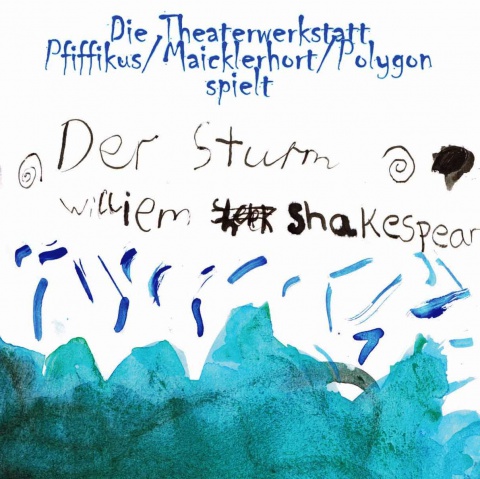 Die Theaterwerkstatt
Pfiffikus/Maicklerhort/Polygon
spielt
Der Sturm
williem shakespear